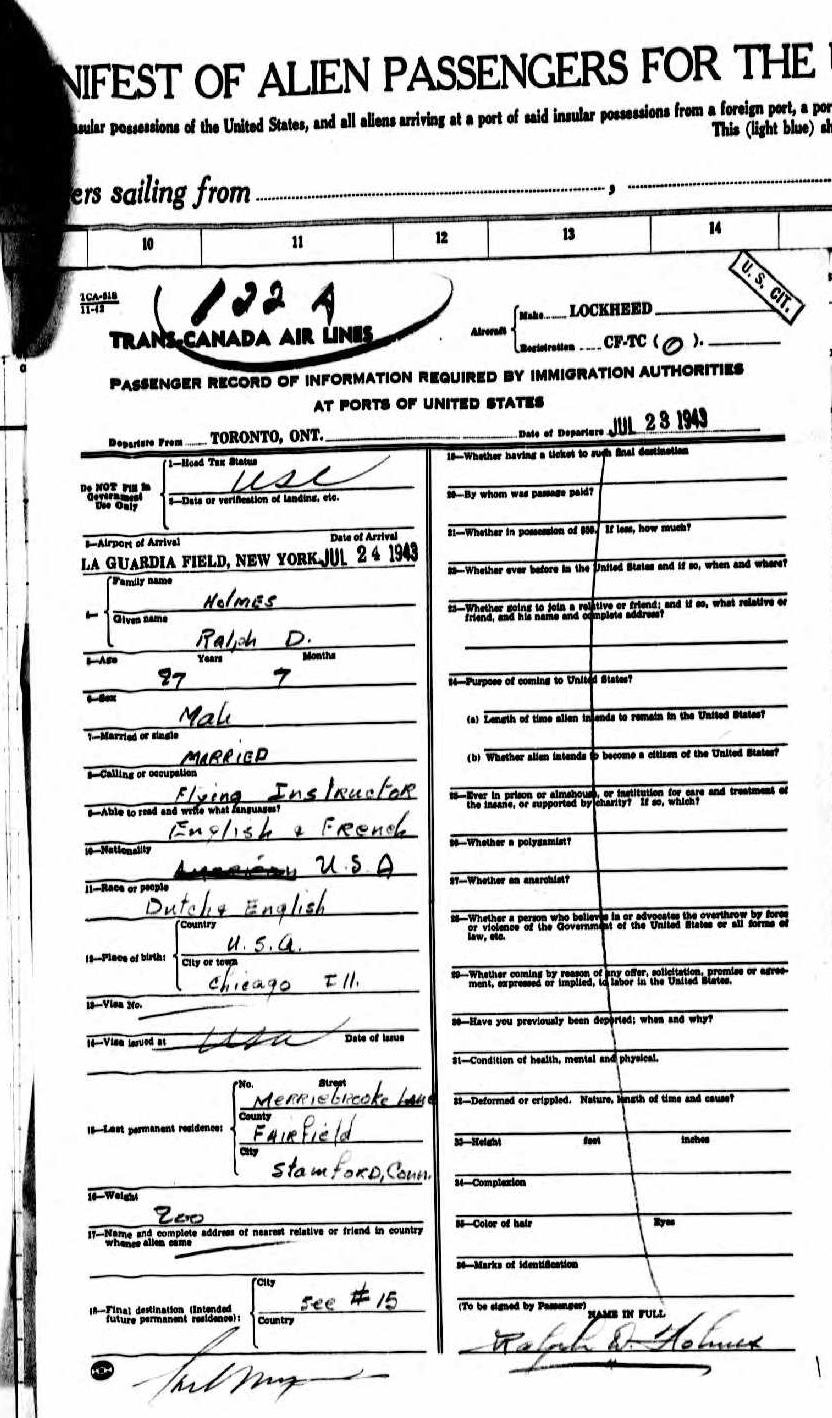 NIFEST OF ALIEN PASSENGERS FOR THE
sular possessions of the United States, and all aliens arriving at a port of said insular possessions from a foreign port, a por
This (light blue) sh
ers sailing from ,
10 11 12 13 14
U. S. CIT.
TCA-818
11-42
122 A
TRANS-CANADA AIR LINES
Aircraft
Make LOCKHEED
Registration CF-TC ( O ).
PASSENGER RECORD OF INFORMATION REQUIRED BY IMMIGRATION AUTHORITIES
AT PORTS OF UNITED STATES
Departure From TORONTO, ONT. Date of Departure JUL 23 1943
Do NOT Fill In
Government
Use Only
1—Head Tax Status
USC
2—Data or verification of landing, etc.
3—Airport of Arrival Date of Arrival
LA GUARDIA FIELD, NEW YORK JUL 24 1943
4—
Family name
HOLMES
Given name
Ralph D.
5—Age Years Months
27 7
6—Sex
Male
7—Married or single
MARRIED
8—Calling or occupation
Flying INSTRUCTOR
9—Able to read and write what languages?
English & French
10—Nationality
American U.S.A
11—Race or people
Dutch & English
12—Place of birth:
Country
U.S.A.
City or town
Chicago Ill.
13—Visa No.
14—Visa issued at USA Date of issue
15—Last permanent residence:
No. Street
MERRIEBROOKE LANE
County
FAIRFIELD
City
STAMFORD, Conn.
16—Weight
200
17—Name and complete address of nearest relative or friend in country
whence alien came
18—Final destination (Intended
future permanent residence):
City
See # 15
Country
19—Whether having a ticket to such final destination
20—By whom was passage paid?
21—Whether in possession of $50. If less, how much?
22—Whether ever before in the United States and if so, when and where?
23—Whether going to join a relative or friend; and if so, what relative or
friend, and his name and complete address?
24—Purpose of coming to United States?
(a) Length of time alien intends to remain in the United States?
(b) Whether alien intends to become a citizen of the United States?
25—Ever in prison or almshouse, or institution for care and treatment of
the insane, or supported by charity? If so, which?
26—Whether a polygamist?
27—Whether an anarchist?
28—Whether a person who believes in or advocates the overthrow by force
or violence of the Government of the United States or all forms of
law, etc.
29—Whether coming by reason of any offer, solicitation, promise or agree-
ment, expressed or implied, to labor in the United States.
30—Have you previously been deported; when and why?
31—Condition of health, mental and physical.
32—Deformed or crippled. Nature, length of time and cause?
33—Height feet inches
34—Complexion
35—Color of hair Eyes
36—Marks of identification
(To be signed by Passenger) NAME IN FULL
Ralph D. Holmes